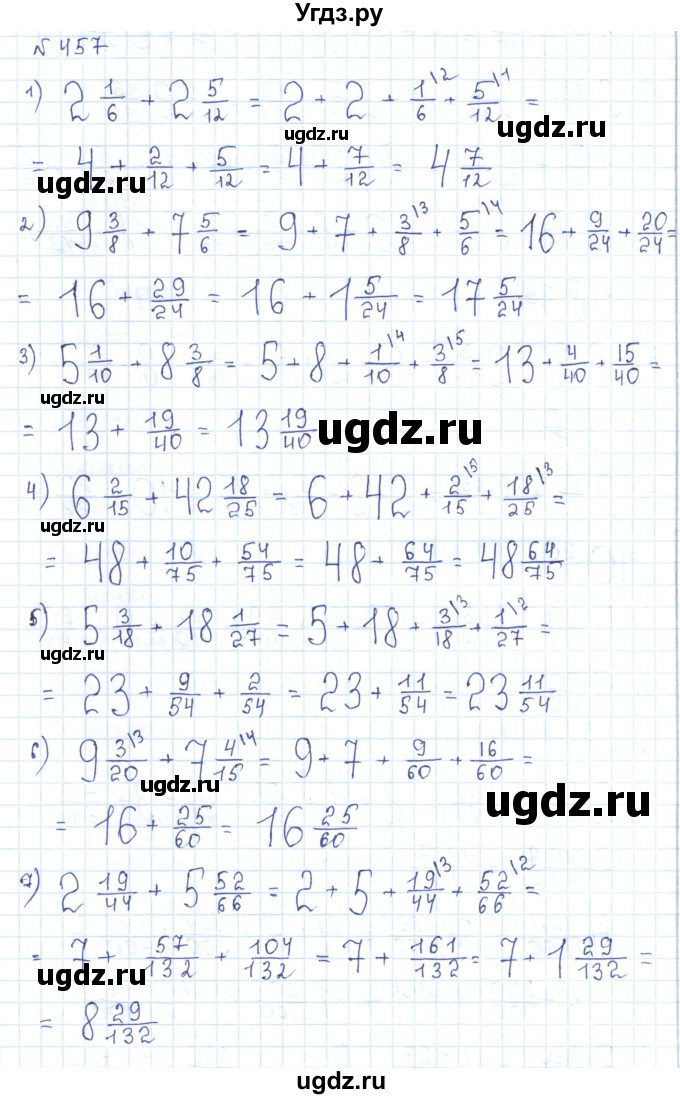 Угдз.ру
№ 457
1) 2 1/6 + 2 5/12 = 2 + 2 + 1/6\2 + 5/12\1 =
ugdz.ru
= 4 + 2/12 + 5/12 = 4 + 7/12 = 4 7/12
ugdz.ru ugdz.ru
2) 9 3/8 + 7 5/6 = 9 + 7 + 3/8\3 + 5/6\4 = 16 + 9/24 + 20/24 =
ugdz.ru
= 16 + 29/24 = 16 + 1 5/24 = 17 5/24
3) 5 1/10 + 8 3/8 = 5 + 8 + 1/10\4 + 3/8\5 = 13 + 4/40 + 15/40 =
ugdz.ru
= 13 + 19/40 = 13 19/40
ugdz.ru
4) 6 2/15 + 42 18/25 = 6 + 42 + 2/15\5 + 18/25\3 =
= 48 + 10/75 + 54/75 = 48 + 64/75 = 48 64/75
ugdz.ru
5) 5 3/18 + 18 1/27 = 5 + 18 + 3/18\3 + 1/27\2 =
ugdz.ru
= 23 + 9/54 + 2/54 = 23 + 11/54 = 23 11/54
6) 9 3/20\3 + 7 4/15\4 = 9 + 7 + 9/60 + 16/60 =
ugdz.ru
ugdz.ru
= 16 + 25/60 = 16 25/60
7) 2 19/44 + 5 52/66 = 2 + 5 + 19/44\3 + 52/66\2 =
= 7 + 57/132 + 104/132 = 7 + 161/132 = 7 + 1 29/132 =
ugdz.ru ugdz.ru
= 8 29/132
ugdz.ru